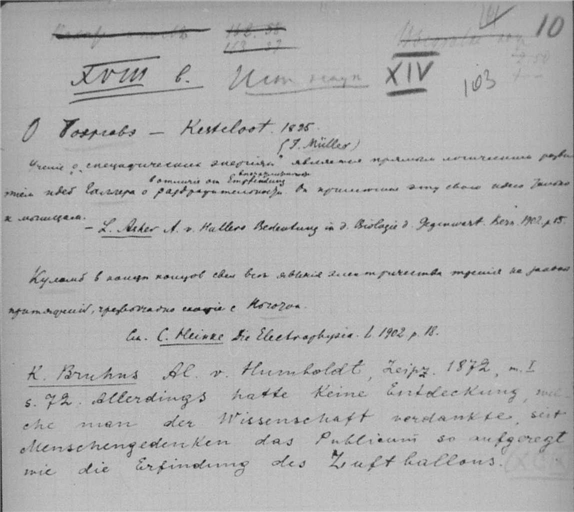 10
XVIII в. Ист наук XIV
103
О Боэргавэ – Kesteloot. 1825.
(J. Müller)
Учение о „специфических энергиях“ является прямым логическим разви
в отличие от Empfindung
тием идей Галлера о раздражительности. Он приложил эту свою идею только
к мышцам.
– L. Asher A. v. Hallers Bedeutung in d. Biologie d. Gegenwart. Bern 1902. p. 15.
Кулон в конце концов свел все явления электричества трения на законы
притяжений, сходные с Ньютон.
См. C. Heinke Die Electrophysic. L. 1902 p. 18.
K. Bruhns Al. v. Humboldt, Leipz. 1872, т. I
s. 72. Allerdings hatte keine Entdeckung, wel-
che man der Wissenschaft verdankte, seit
Menschengedenken das Publicum so aufgeregt
wie die Erfindung des Luftballons.